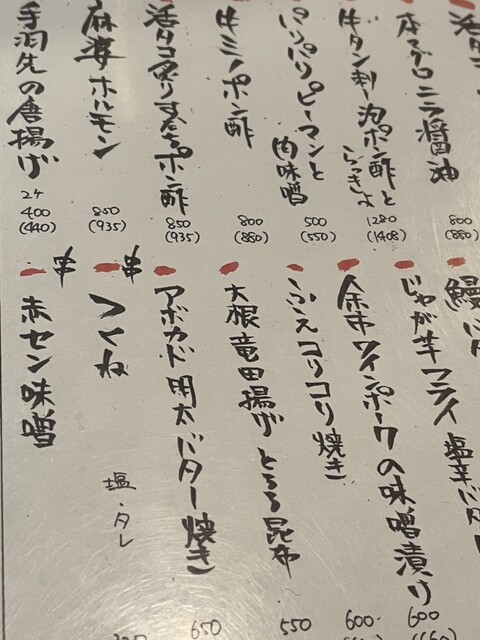 活タコ
800
(880)
本マグロニラ醤油
牛タン刺 泡ポン酢と
らっきょ
1280
(1408)
パリパリピーマンと
肉味噌
500
(550)
牛ミノポン酢
800
(880)
活タコ炙りすだちポン酢
850
(935)
麻婆ホルモン
850
(935)
手羽先の唐揚げ
2ケ
400
(440)
鰻バタ
塩辛バター
じゃが芋フライ
600
余市ワインポークの味噌漬け
600
ふえコリコリ焼き
550
大根竜田揚げとろろ昆布
アボカド明太バター焼き
650
串
つくね
塩・タレ
串
赤セン味噌